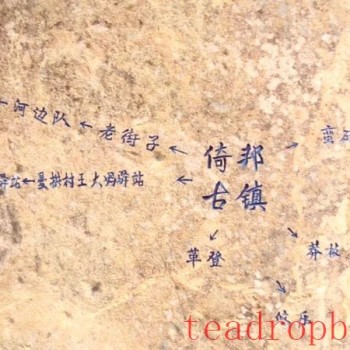 ←河边队←老街子←
倚邦
古镇
→蛮
驿站←曼拱村王大妈驿站←
革登
莽枝
悠乐
teadropb